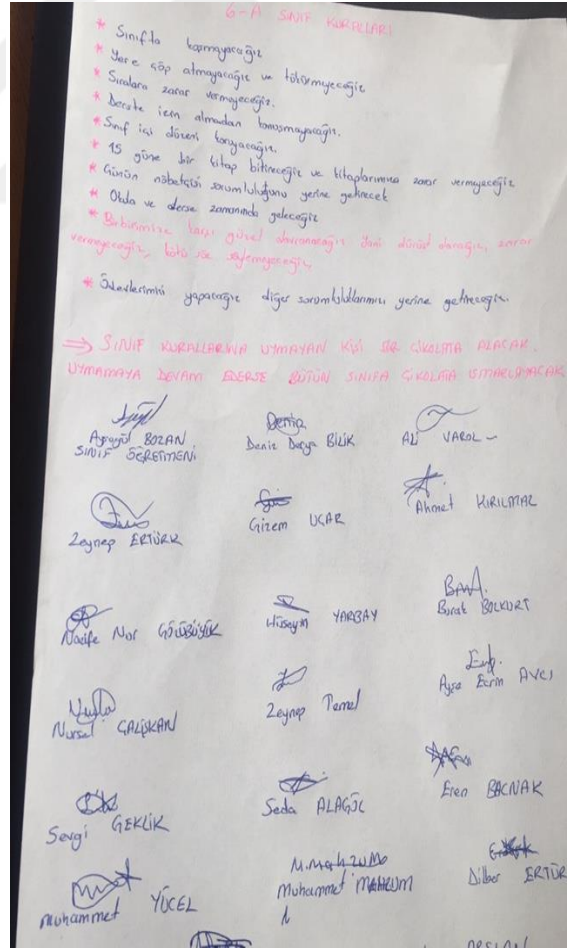 6-A SINIF KURALLARI
* Sınıfta koşmayacağız
* Yere çöp atmayacağız ve tükürmeyeceğiz
* Sıralara zarar vermeyeceğiz.
* Derste izin almadan konuşmayacağız.
* Sınıf içi düzeni koruyacağız.
* 15 güne bir kitap bitireceğiz ve kitaplarımıza zarar vermeyeceğiz
* Günün nöbetçisi sorumluluğunu yerine getirecek
* Okula ve derse zamanında geleceğiz
* Birbirimize karşı güzel davranacağız Yani dürüst olacağız, zarar
vermeyeceğiz, kötü söz söylemeyeceğiz,
* Ödevlerimizi yapacağız diğer sorumluluklarımızı yerine getireceğiz.
⇒ SINIF KURALLARINA UYMAYAN KİŞİ BİR ÇİKOLATA ALACAK.
UYMAMAYA DEVAM EDERSE BÜTÜN SINIFA ÇİKOLATA ISMARLAYACAK
Ayşegül BOZAN
SINIF ÖĞRETMENİ
Deniz
Deniz Derya BİLİK
ALİ VAROL
Zeynep ERTÜRK
Gizem UÇAR
Ahmet KIRILMAZ
Nazife Nur GÖLÜBÜYÜK
Hüseyin YARBAY
Burak BOLKURT
Nursel ÇALIŞKAN
Zeynep Temel
Ayşe Ecrin AVCI
Sevgi GEKLİK
Seda ALAGÖL
Eren BACNAK
Muhammet YÜCEL
M.Mahzumo
Muhammet MAHZUM
Dilber ERTÜR
ARSLAN